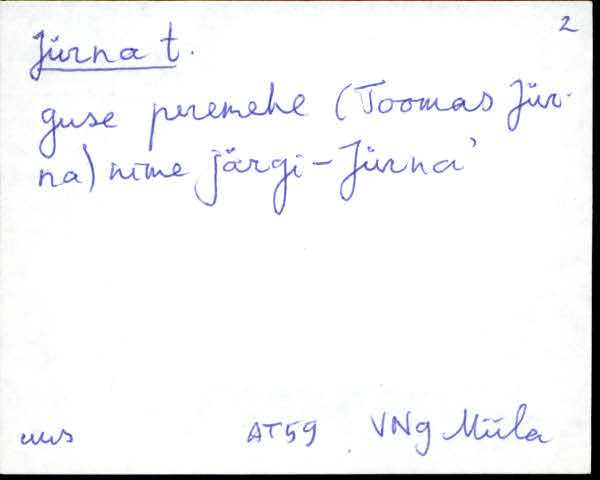 2
Jürna t.
guse peremehe (Toomas Jür-
na) nime järgi - Jürna'
AT59 VNg Miila